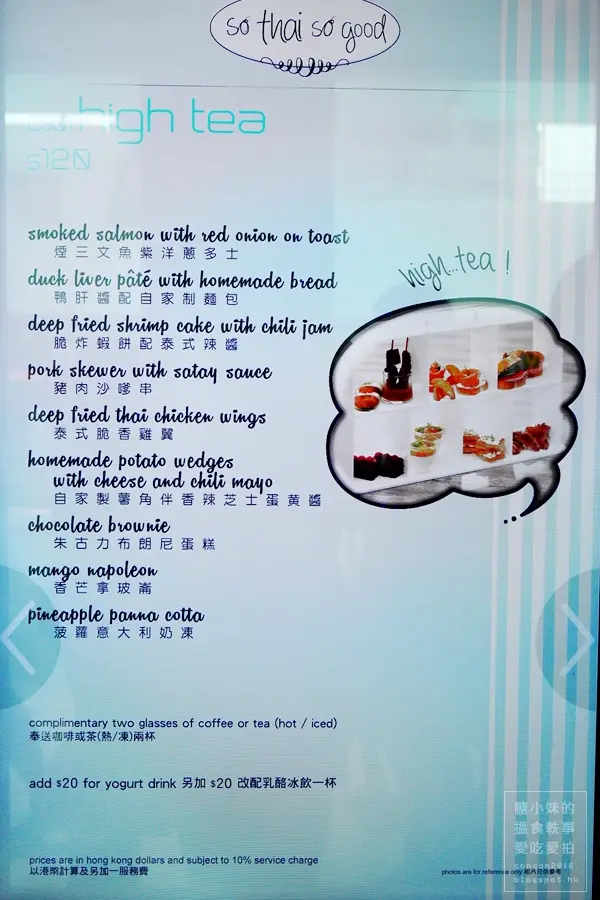 so thai so good
high tea
$120
smoked salmon with red onion on toast
煙三文魚紫洋蔥多士
duck liver pâté with homemade bread
鴨肝醬配自家制麵包
high...tea!
deep fried shrimp cake with chili jam
脆炸蝦餅配泰式辣醬
pork skewer with satay sauce
豬肉沙嗲串
deep fried thai chicken wings
泰式脆香雞翼
homemade potato wedges
with cheese and chili mayo
自家製薯角伴香辣芝士蛋黃醬
chocolate brownie
朱古力布朗尼蛋糕
mango napoleon
香芒拿玻崙
pineapple panna cotta
菠蘿意大利奶凍
complimentary two glasses of coffee or tea (hot / iced)
奉送咖啡或茶(熱/凍)兩杯
add $20 for yogurt drink 另加 $20 改配乳酪冰飲一杯
prices are in hong kong dollars and subject to 10% service charge
以港幣計算及另加一服務費
photos are for reference only 相片只供參考
糖小妹的
搵食軼事
愛吃愛拍
concon2816.
blogspot.hk